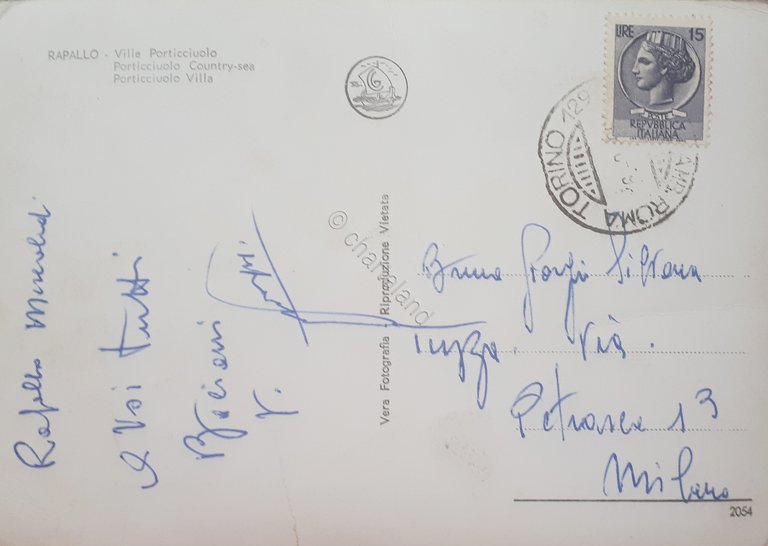 RAPALLO - Ville Porticciuolo
Porticciuolo Country-sea
Porticciuolo Villa
LIRE 15
POSTE
REPVBBLICA
ITALIANA
TORINO 129
AMB. ROMA
Rapallo
A Voi tutti
Bacioni
Vera Fotografia - Riproduzione Vietata
© chartaland
Bruna Giorgio Silvana
Via
Petrarca 13
Milano
2054